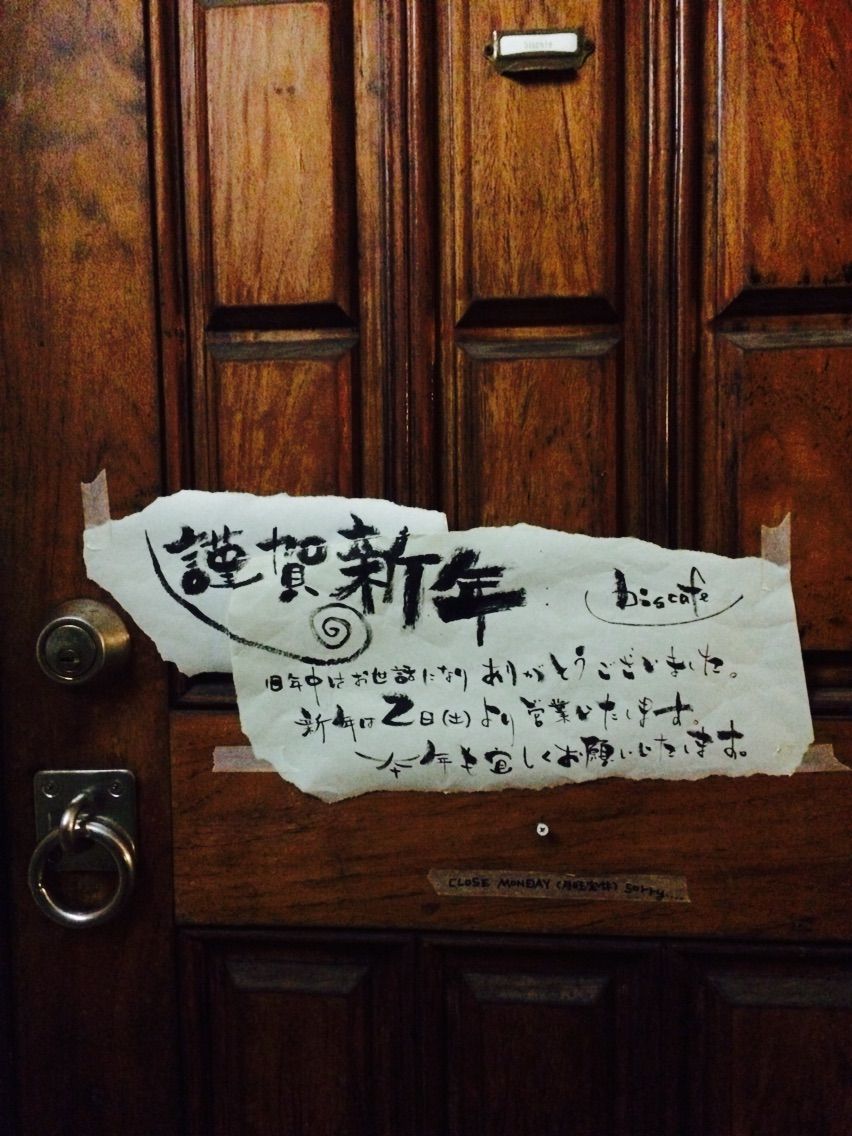 謹賀新年
biscafe
旧年中はお世話になりありがとうございました。
新年は2日(土)より営業いたします。
今年も宜しくお願いいたします。
CLOSE MONDAY (月曜定休) sorry....